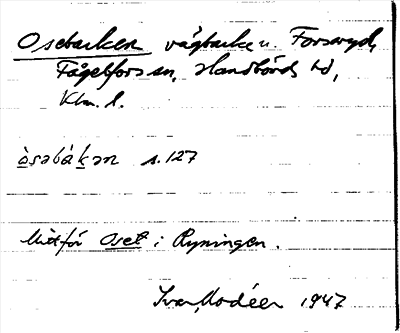 Osebacken vägbacke u. Forsaryd,
Fågelfors sn, Handbörds hd,
Klm. l.
òsəbákən s. 127
Mitt för Oset i Ryningen.
Ivar Modéer 1947